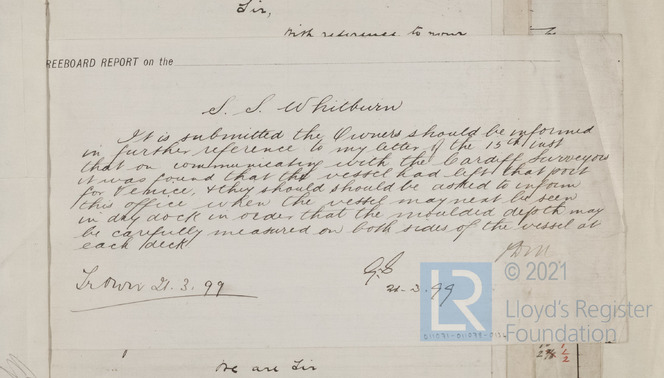 Sir,
With reference to your
REEBOARD REPORT on the
S. S. Whilburn
It is submitted the Owners should be informed
in further reference to my letter of the 15th inst
that on communicating with the Cardiff Surveyors
it was found that the vessel had left that port
for Venice, & they should should be asked to inform
this office when the vessel may next be seen
in dry dock in order that the moulded depth may
be carefully measured on both sides of the vessel at
each deck
21.3.99
21.3.99
© 2021
LR
Lloyd's Register
Foundation
We are Sir